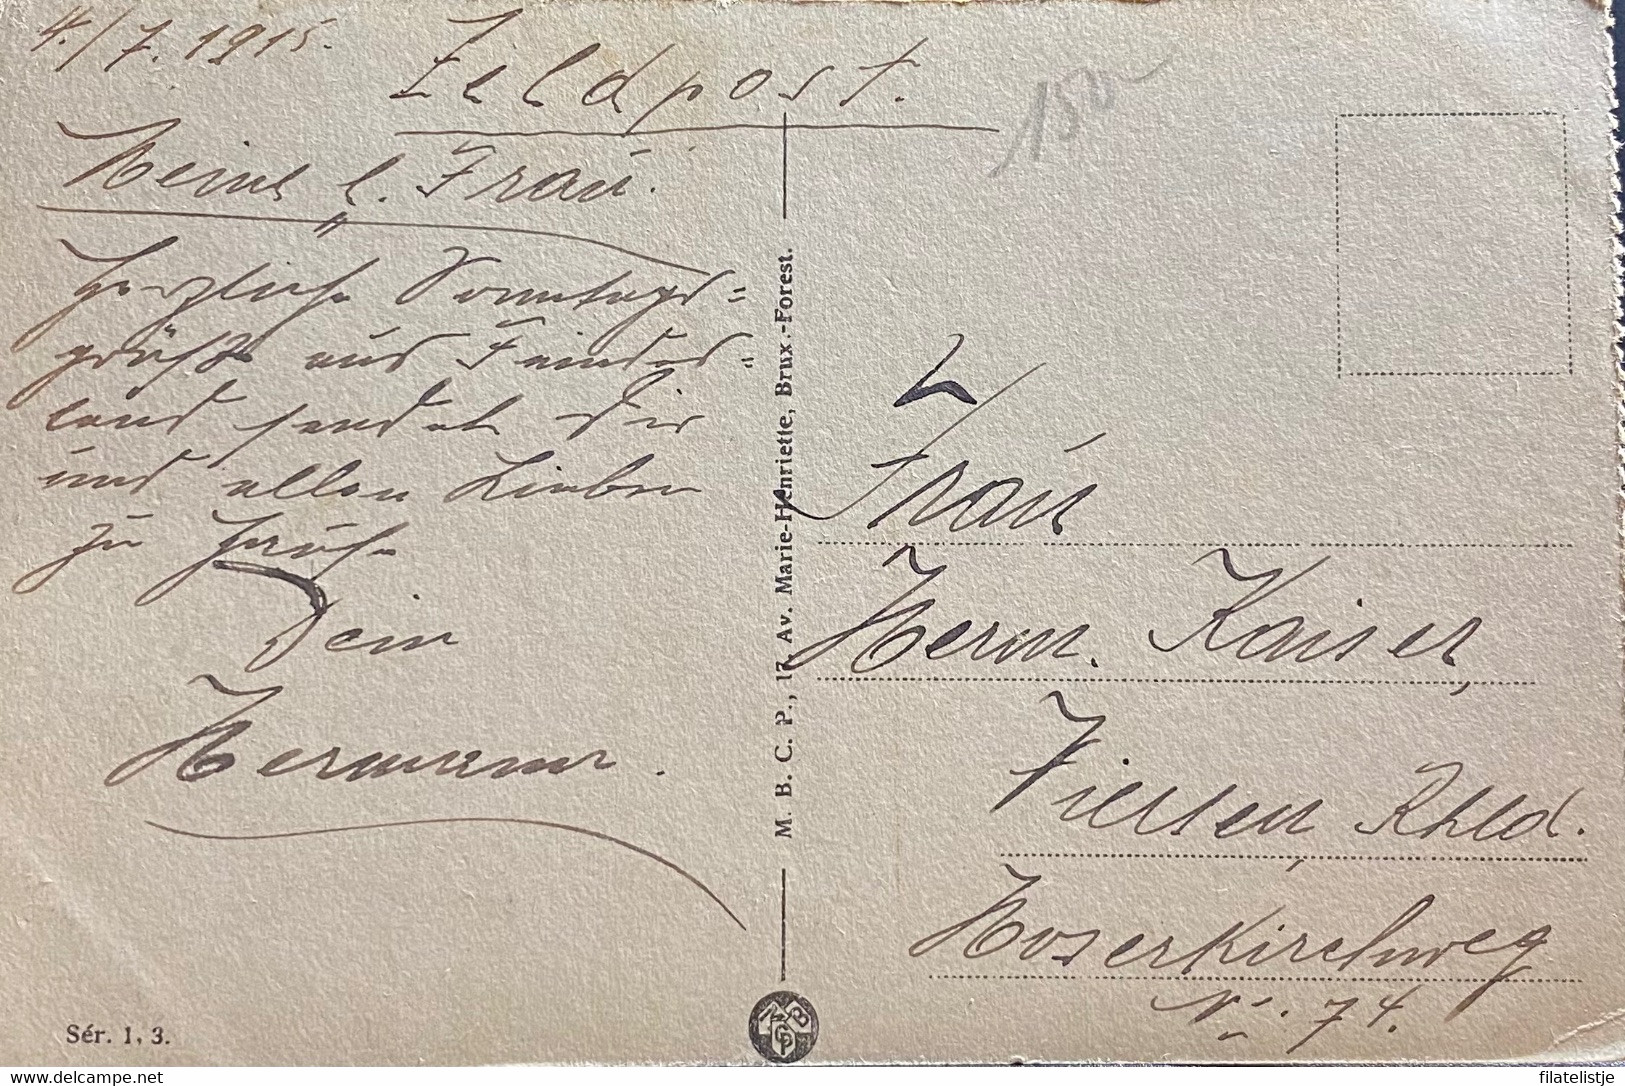 4./7. 1915.
Feldpost.
150
Meine l. Frau.
Herzliche Sonntags=
grüße aus Feindes=
land sendet Dir
und allen Lieben
zu Hause
Dein
Hermann.
Sér. 1, 3.
M. B. C. P., 17, Av. Marie-Henriette, Brux.-Forest.
Frau
Herm. Kaiser,
Viersen Rhld.
Hoserkirchweg
No. 74.
delcampe.net
filatelistje